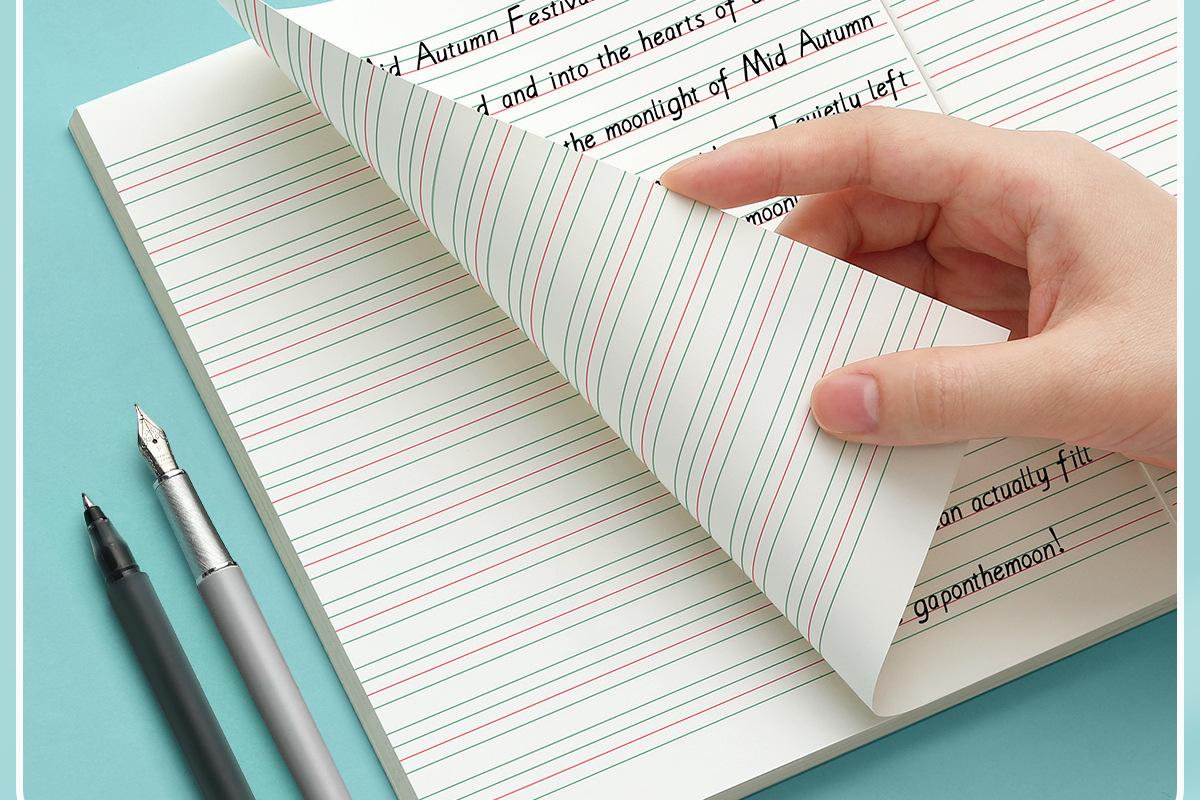 Mid Autumn Festiva
d and into the hearts of
the moonlight of Mid Autumn
I quietly left
moon
an actually fill
gaponthemoon!